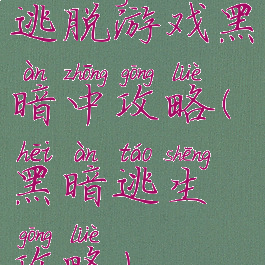 逃脱游戏黑
àn zhōng gōng lüè
暗中攻略(
hēi àn táo shēng
黑暗逃生
gōng lüè
攻略)